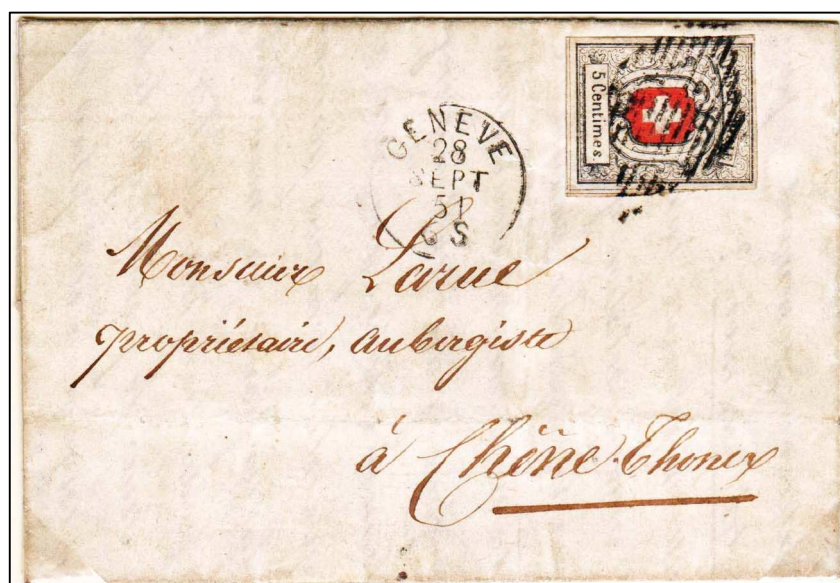 5 Centimes.
GENÈVE
28
SEPT
51
S
Monsieur Larue
propriétaire, aubergiste
à Chêne-Thonex